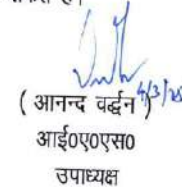 4/3/25
( आनन्द वर्द्धन )
आई०ए०एस०
उपाध्यक्ष